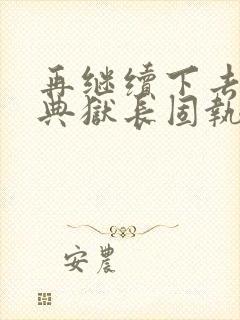 再继续下去
典獄长固執
安農